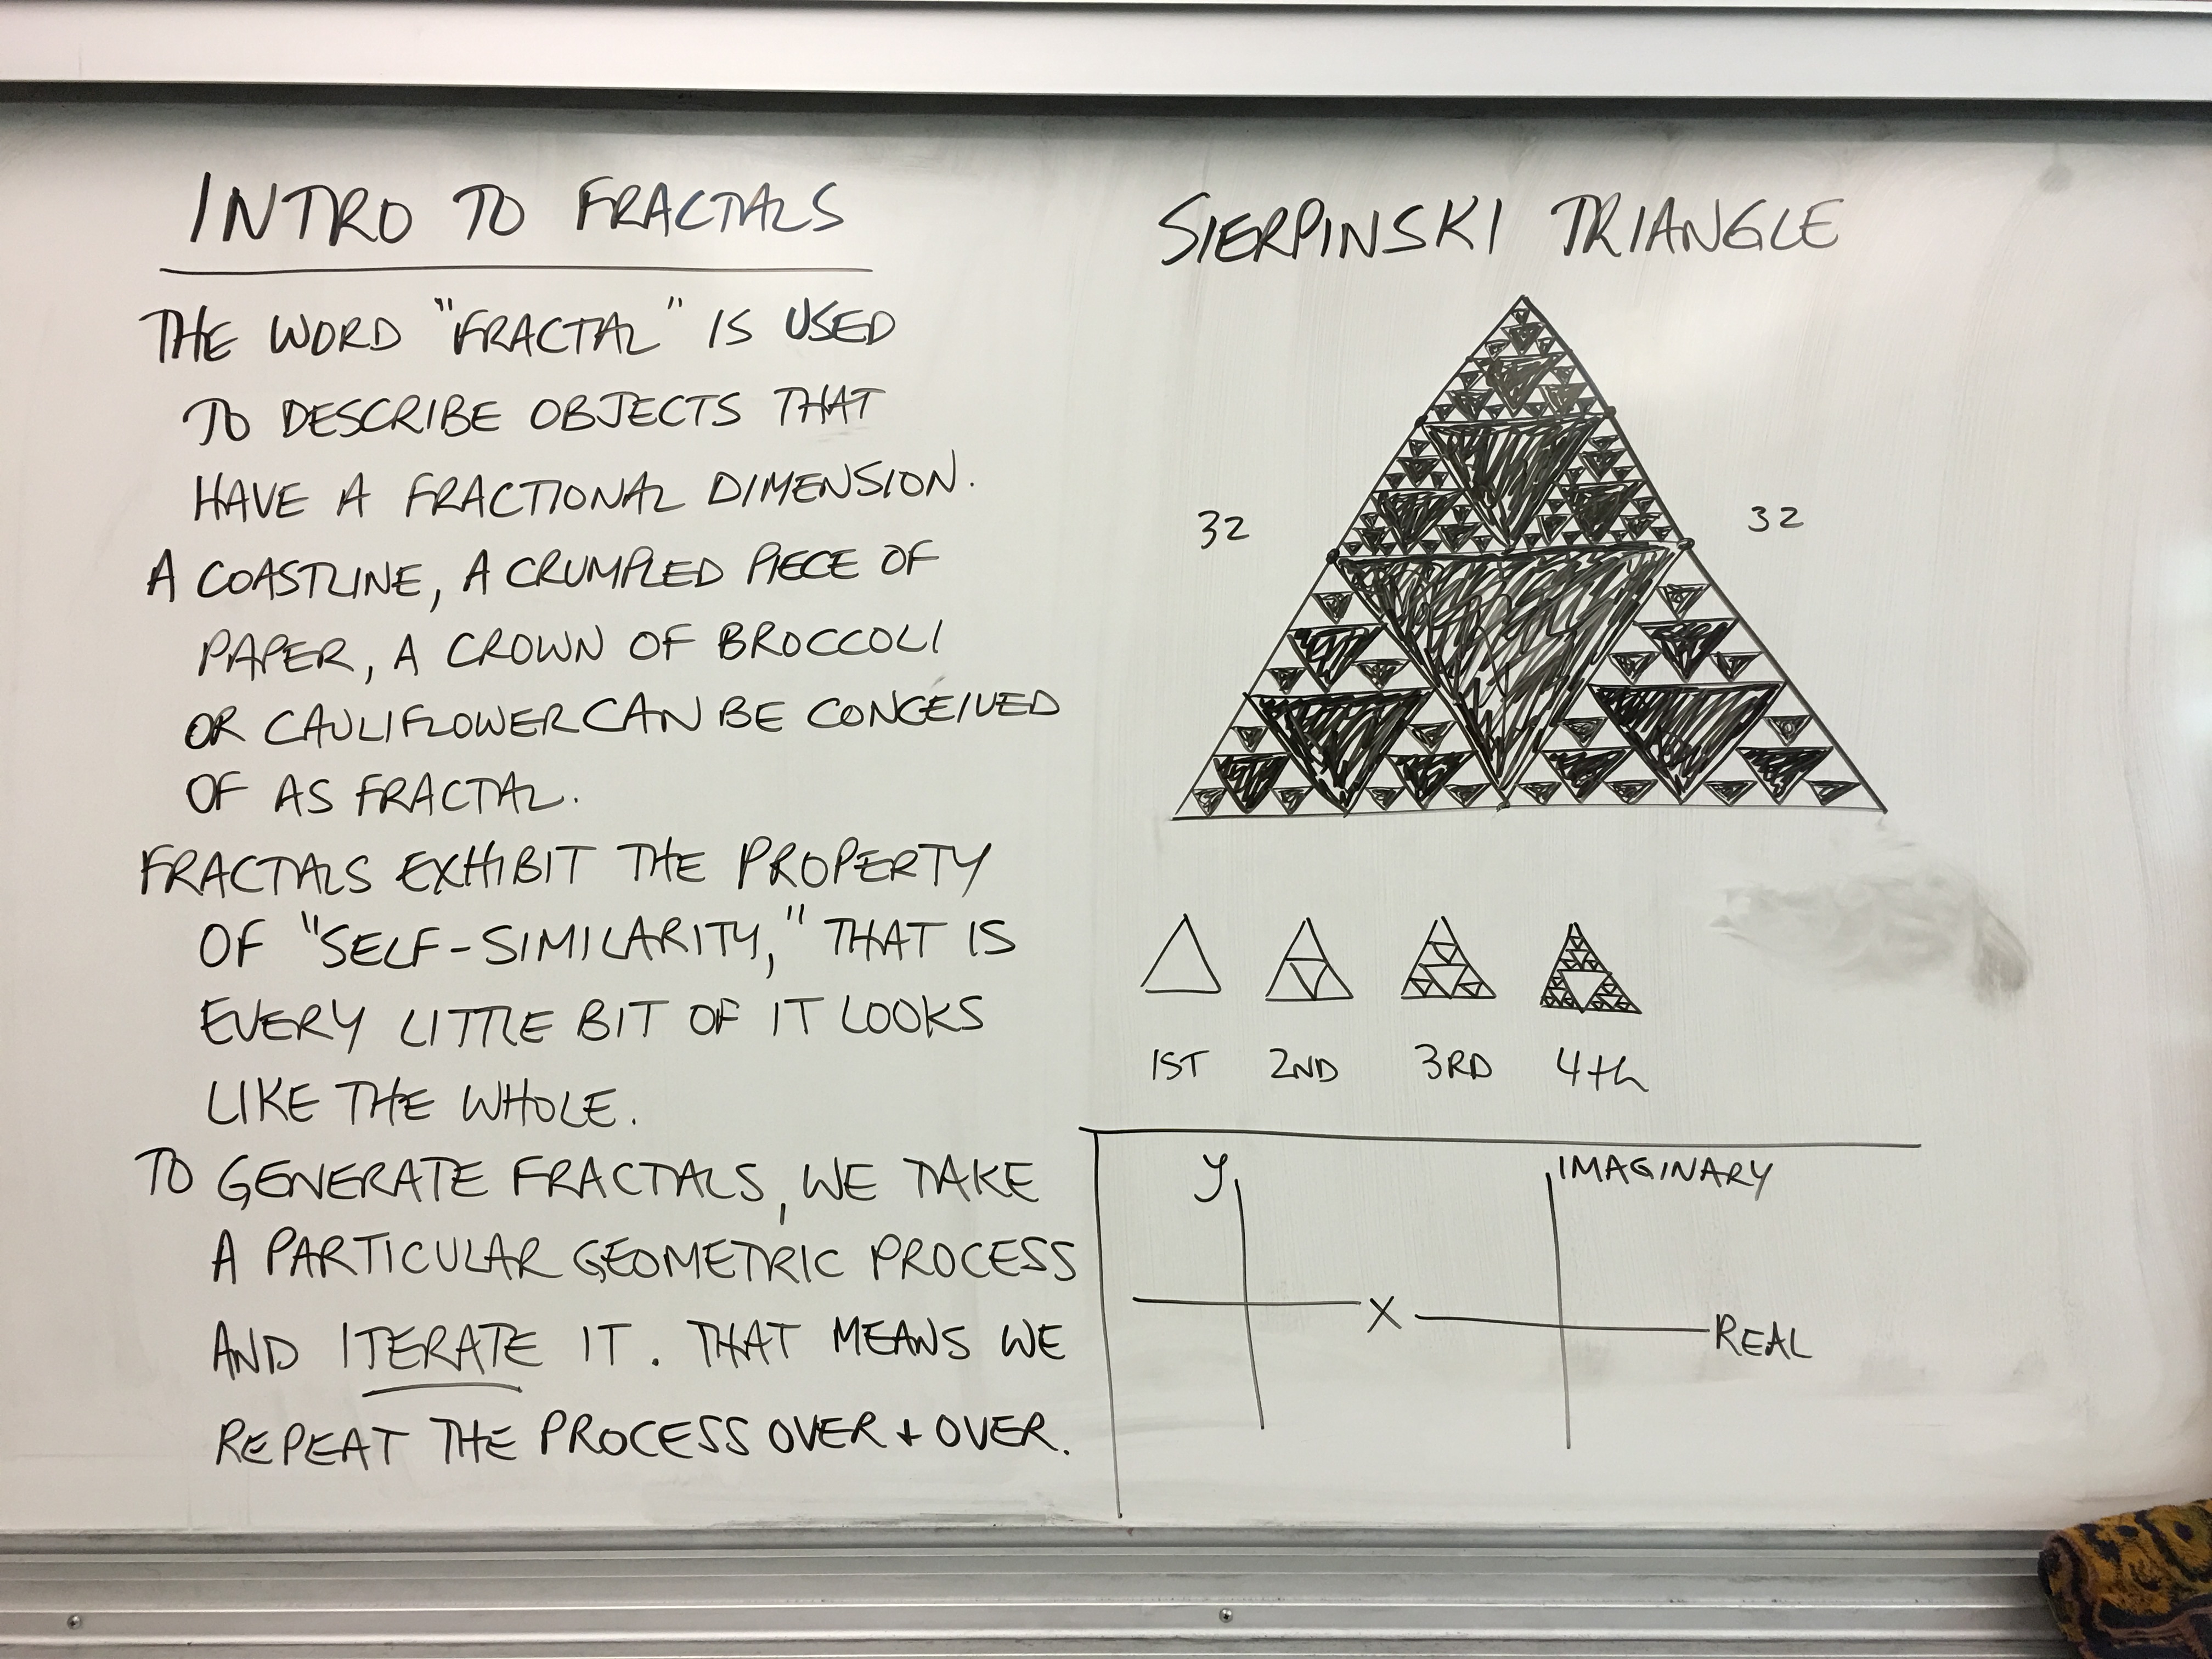 INTRO TO FRACTALS
THE WORD "FRACTAL" IS USED
TO DESCRIBE OBJECTS THAT
HAVE A FRACTIONAL DIMENSION.
A COASTLINE, A CRUMPLED PIECE OF
PAPER, A CROWN OF BROCCOLI
OR CAULIFLOWER CAN BE CONCEIVED
OF AS FRACTAL.
FRACTALS EXHIBIT THE PROPERTY
OF "SELF-SIMILARITY," THAT IS
EVERY LITTLE BIT OF IT LOOKS
LIKE THE WHOLE.
TO GENERATE FRACTALS, WE TAKE
A PARTICULAR GEOMETRIC PROCESS
AND ITERATE IT. THAT MEANS WE
REPEAT THE PROCESS OVER + OVER.
SIERPINSKI TRIANGLE
32 32
1ST 2ND 3RD 4th
y IMAGINARY
X REAL